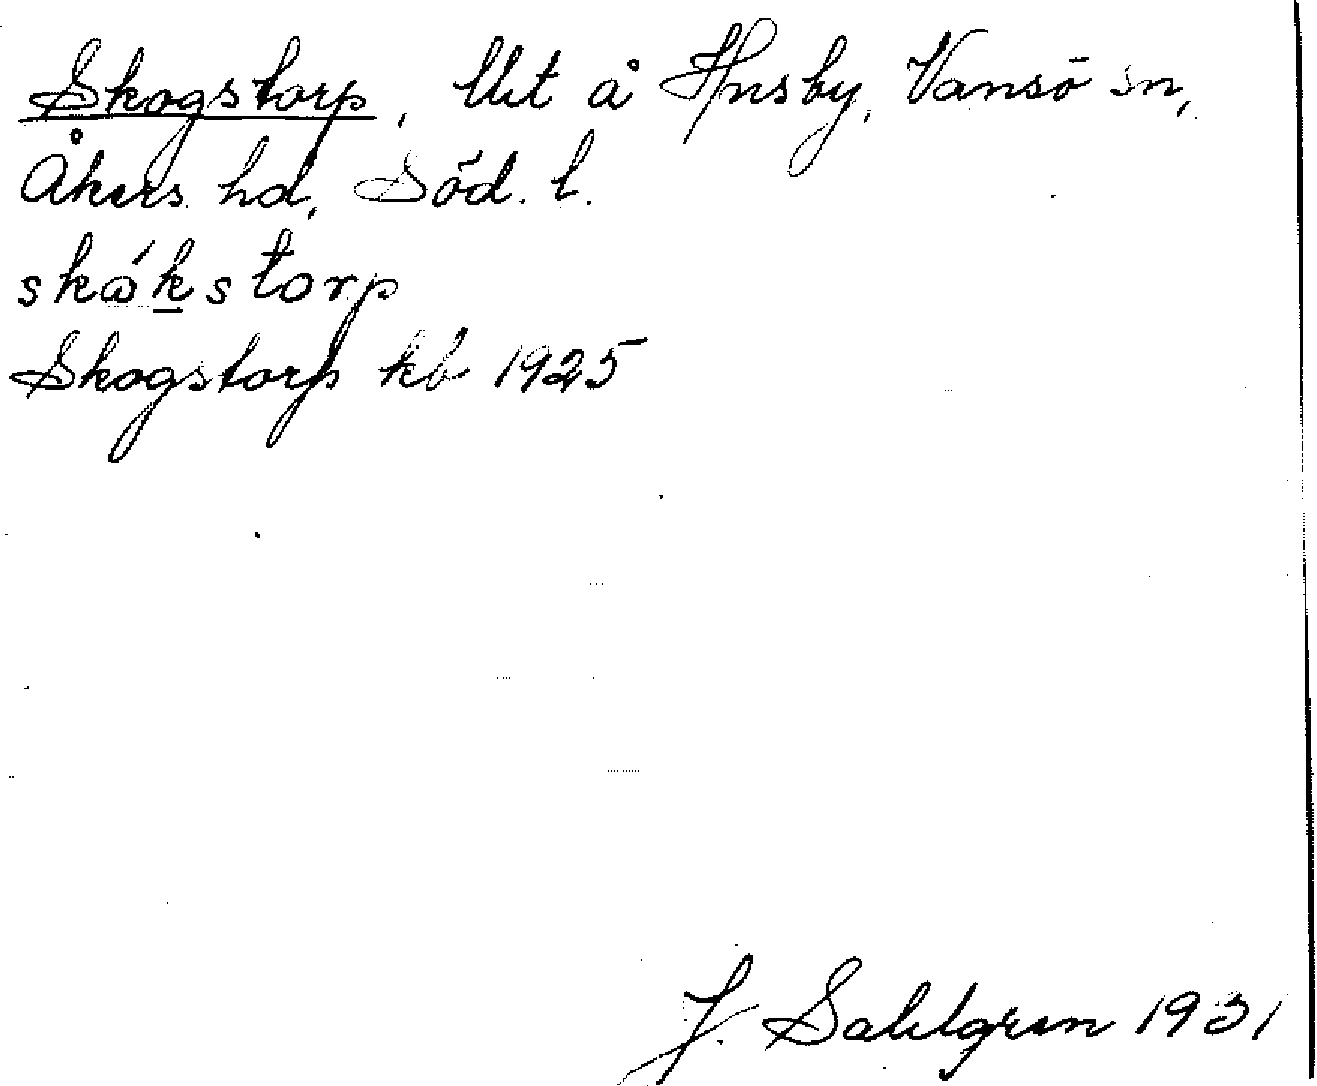 Skogstorp, Ut å Hnsby, Vansö sn,
Åkers hd, Söd. l.
skǻkstorp
Skogstorp kb 1925
J. Sahlgren 1931